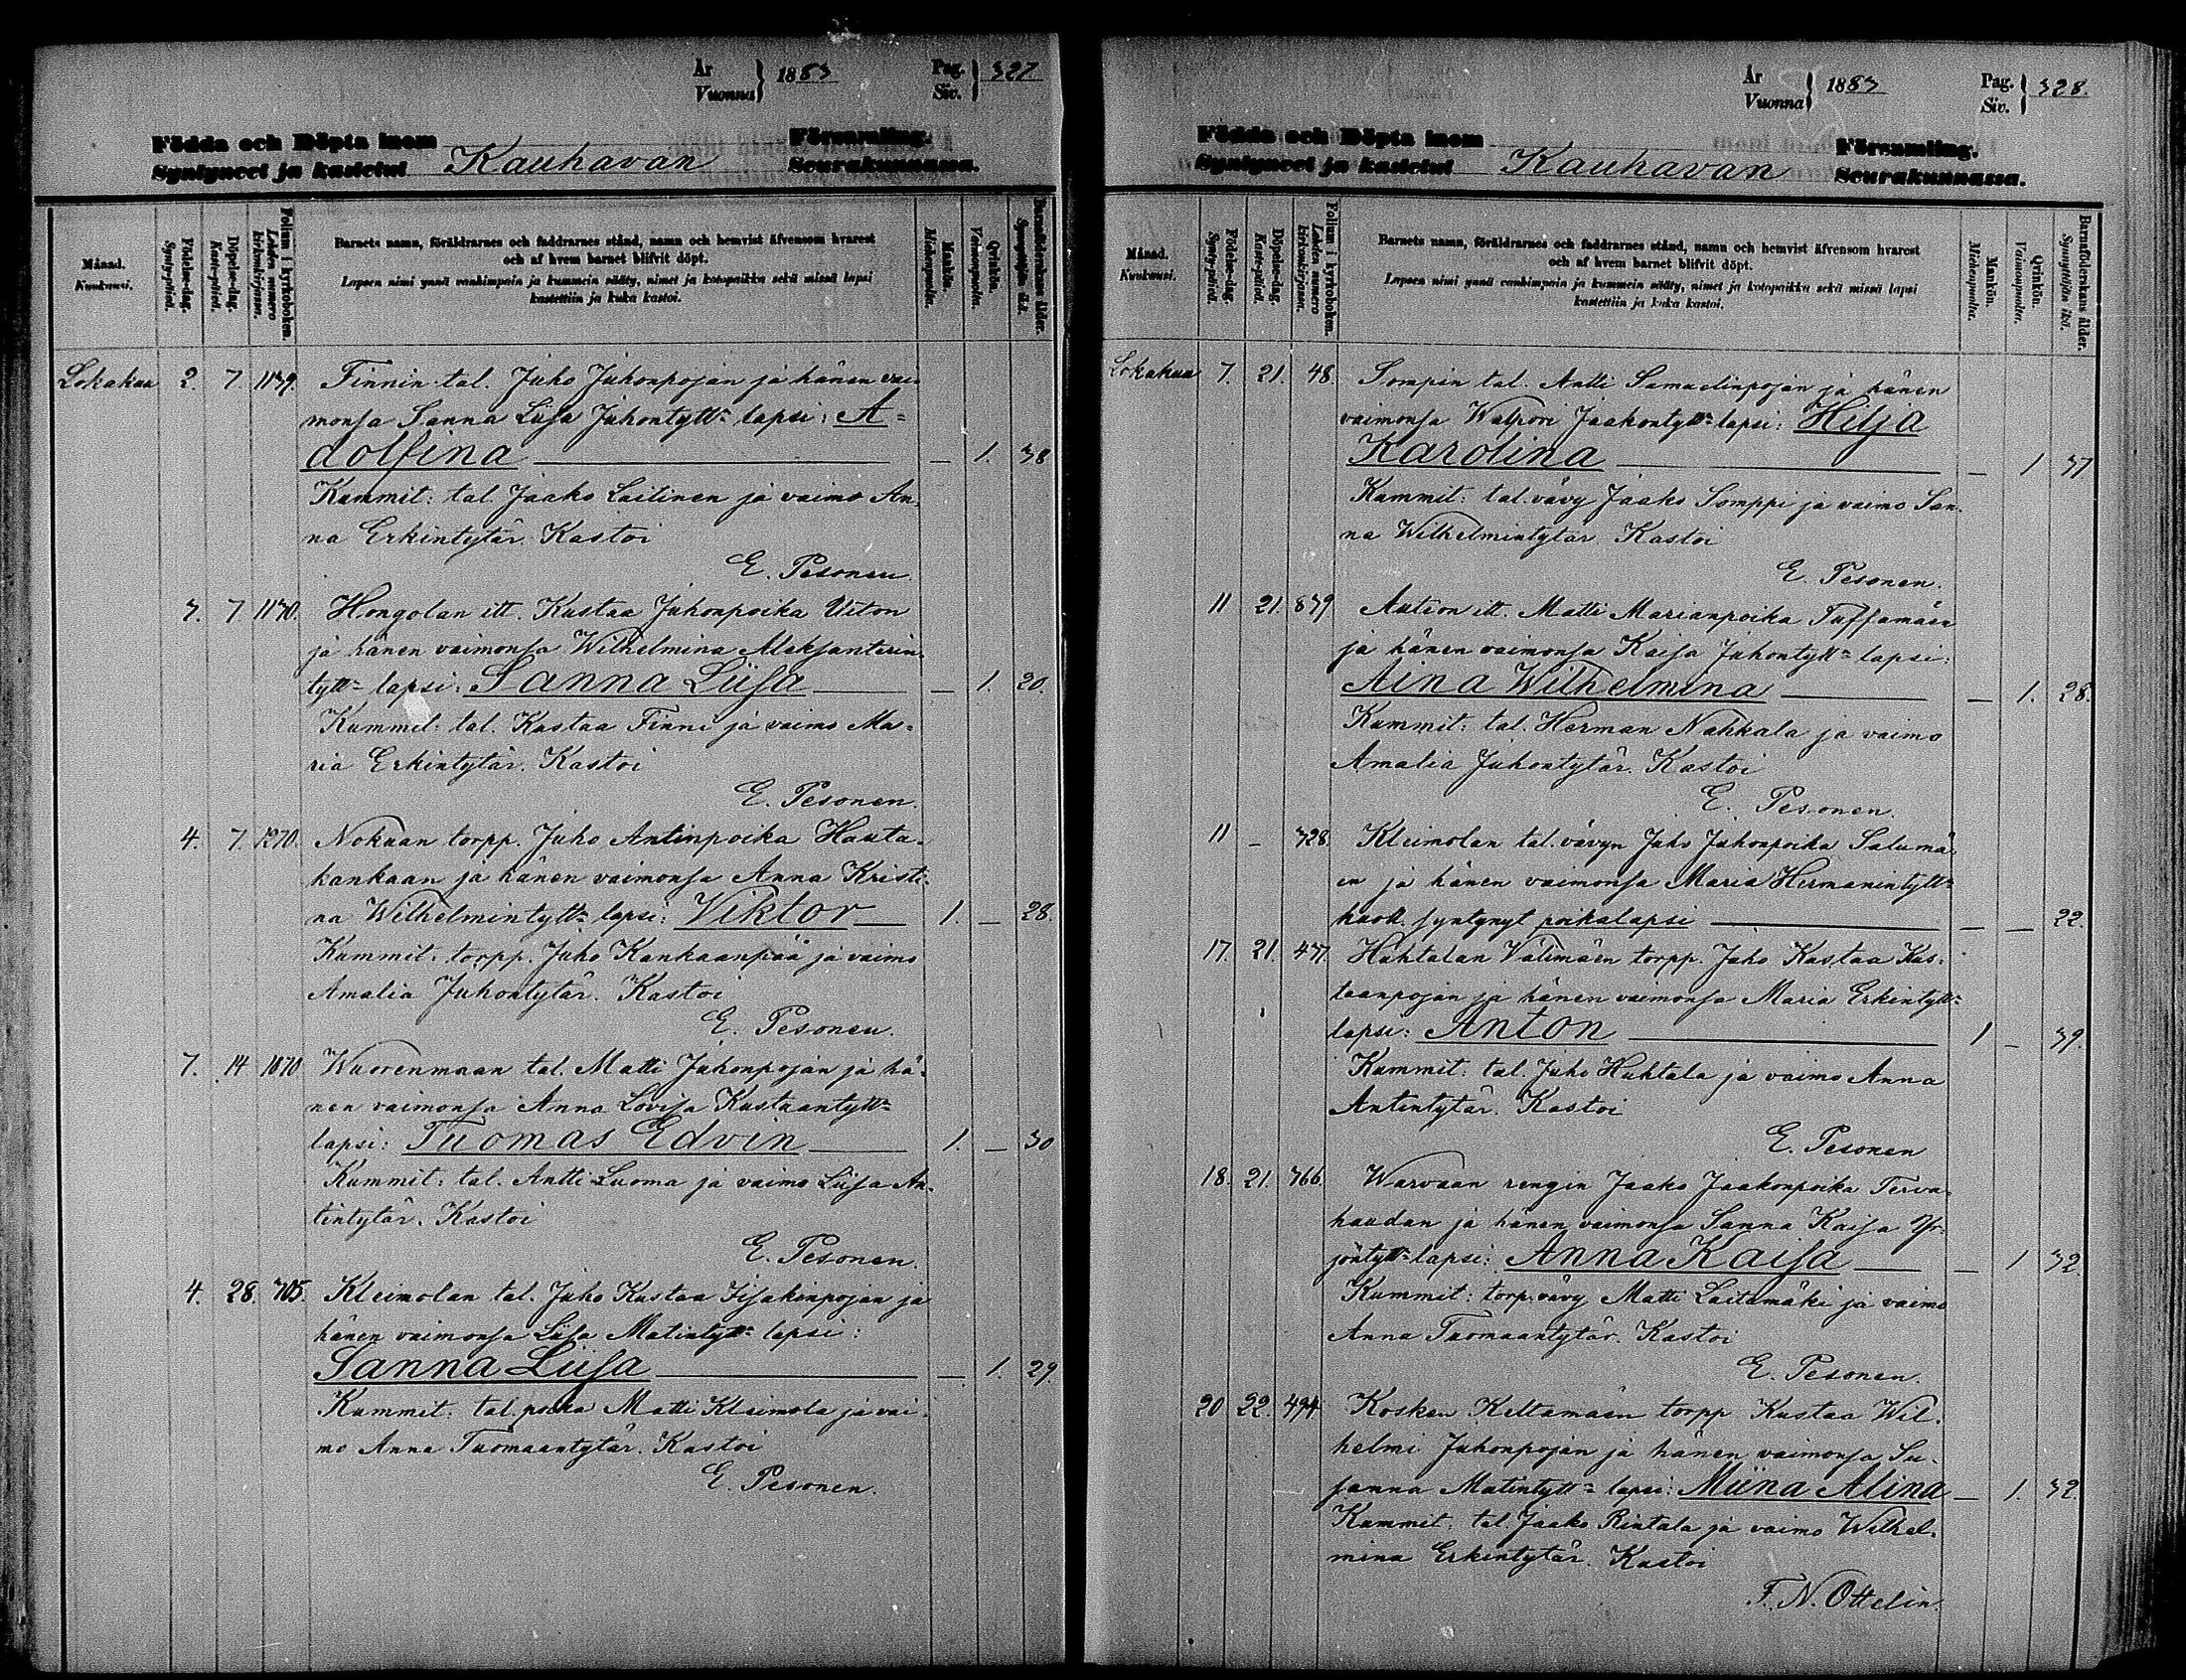 År
Vuonna
1883
Pag.
Siv.
327
Födda och Döpta inom
Syntyneet ja kastetut
Kauhavan
Församling.
Seurakunnassa.
Månad.
Kuukausi.
Födelse-dag.
Synty-päivä.
Döpelse-dag.
Kaste-päivä.
Folium i kyrkoboken.
Lehden numero kirkonkirjassa.
Barnets namn, föräldrarnes och faddrarnes stånd, namn och hemvist äfvensom hvarest
och af hvem barnet blifvit döpt.
Lapsen nimi ynnä vanhimpain ja kummein sääty, nimet ja kotopaikka sekä missä lapsi
kastettiin ja kuka kastoi.
Mankön.
Miehenpuolta.
Qvinkön.
Vaimonpuolta.
Barnaföderskans ålder.
Synnyttäjän ikä.
Lokakuu 2. 7. 1139. Finnin tal. Juho Juhonpojan ja hänen vai-
monsa Sanna Liisa Juhontytt= lapsi: A=
dolfina — 1. 38
Kummit: tal. Jaako Laitinen ja vaimo An-
na Erkintytär. Kastoi
E. Pesonen.
3. 7. 1130. Hongolan itt. Kustaa Juhonpoika Uiton
ja hänen vaimonsa Wilhelmina Aleksanterin-
tytt= lapsi: Sanna Liisa — 1. 20.
Kummit: tal. Kustaa Finni ja vaimo Ma-
ria Erkintytär. Kastoi
E. Pesonen.
4. 7. 1270. Nokuan torpp. Juho Antinpoika Hauta-
kankaan ja hänen vaimonsa Anna Kristi-
na Wilhelmintytt= lapsi: Viktor 1. — 28.
Kummit: torpp. Juho Kankaanpää ja vaimo
Amalia Juhontytär. Kastoi
E. Pesonen.
7. 14 1070 Wuorenmaan tal. Matti Juhonpojan ja hä-
nen vaimonsa Anna Lovisa Kustaantytt=
lapsi: Tuomas Edvin 1. — 30
Kummit: tal. Antti Luoma ja vaimo Liisa An-
tintytär. Kastoi
E. Pesonen.
4. 28. 305. Kleimolan tal. Juho Kustaa Iisakinpojan ja
hänen vaimonsa Liisa Matintytt= lapsi:
Sanna Liisa — 1. 29.
Kummit: tal. poika Matti Kleimola ja vai-
mo Anna Tuomaantytär. Kastoi
E. Pesonen.
År
Vuonna
1883
Pag.
Siv.
328.
Födda och Döpta inom
Syntyneet ja kastetut
Kauhavan
Församling.
Seurakunnassa.
Månad.
Kuukausi.
Födelse-dag.
Synty-päivä.
Döpelse-dag.
Kaste-päivä.
Folium i kyrkoboken.
Lehden numero kirkonkirjassa.
Barnets namn, föräldrarnes och faddrarnes stånd, namn och hemvist äfvensom hvarest
och af hvem barnet blifvit döpt.
Lapsen nimi ynnä vanhimpain ja kummein sääty, nimet ja kotopaikka sekä missä lapsi
kastettiin ja kuka kastoi.
Mankön.
Miehenpuolta.
Qvinkön.
Vaimonpuolta.
Barnaföderskans ålder.
Synnyttäjän ikä.
Lokakuu 7. 21. 48. Sompin tal. Antti Samuelinpojan ja hänen
vaimonsa Walpori Jaakontytt= lapsi: Hilja
Karolina — 1 37
Kummit: tal. vävy Jaako Somppi ja vaimo San-
na Wilhelmintytär. Kastoi
E. Pesonen.
11 21. 839 Aution itt. Matti Marianpoika Tussamäen
ja hänen vaimonsa Kaisa Juhontytt= lapsi:
Aina Wilhelmina — 1. 28.
Kummit: tal. Herman Nahkala ja vaimo
Amalia Juhontytär. Kastoi
E. Pesonen.
11 — 328. Kleimolan tal. vävyn Juho Juhonpoika Salumä-
en ja hänen vaimonsa Maria Hermanintytt=
kuoll. syntynyt poikalapsi — — 22.
17. 21. 437. Huhtalan Välimäen torpp. Juho Kustaa Kus-
taanpojan ja hänen vaimonsa Maria Erkintytt=
lapsi: Anton 1 — 39.
Kummit: tal. Juho Huhtala ja vaimo Anna
Antintytär. Kastoi
E. Pesonen
18. 21. 366. Warvaan rengin Jaako Jaakonpoika Terva-
haudan ja hänen vaimonsa Sanna Kaisa Yr-
jöntytt= lapsi: Anna Kaisa — 1 32.
Kummit: torp. vävy Matti Laitamäki ja vaimo
Anna Tuomaantytär. Kastoi
E. Pesonen.
20 22. 494 Kosken Keltamäen torpp Kustaa Wil-
helmi Juhonpojan ja hänen vaimonsa Su-
sanna Matintytt= lapsi: Miina Alina — 1. 32.
Kummit: tal. Jaako Rintala ja vaimo Wilhel-
mina Erkintytär. Kastoi
F. N. Ottelin.